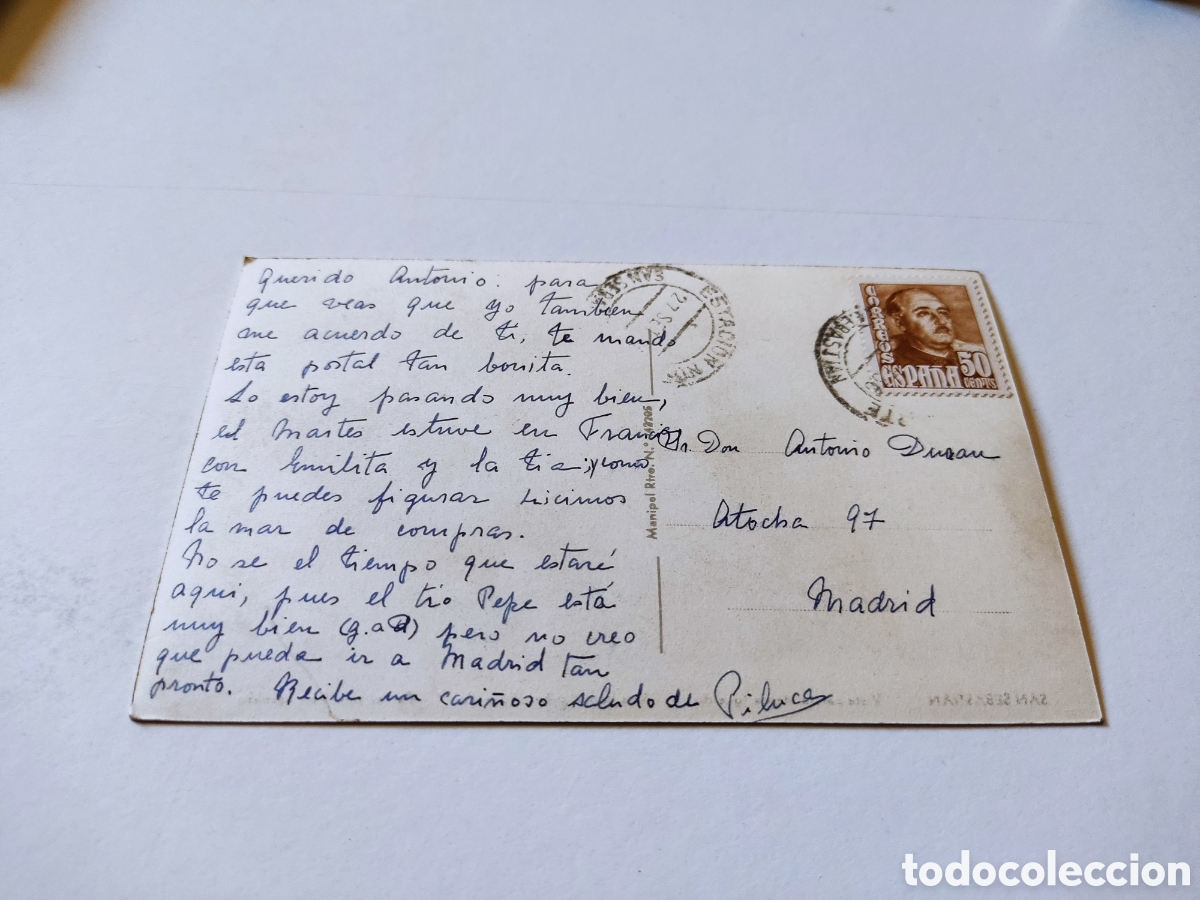 Querido Antonio: para
que veas que yo tambien
me acuerdo de ti, te mando
esta postal tan bonita.
Lo estoy pasando muy bien,
el Martes estuve en Francia
con Emilita y la tia; y como
te puedes figurar hicimos
la mar de compras.
No se el tiempo que estaré
aqui, pues el tio Pepe está
muy bien (g.a D) pero no creo
que pueda ir a Madrid tan
pronto. Recibe un cariñoso saludo de Piluca
Manipel Rtro. N.°
ESTACION
SAN SEBASTIAN
CORREOS
ESPAÑA
50
CENTS
Sr. Don Antonio Duran
Atocha 97
Madrid
SAN SEBASTIAN
todocoleccion